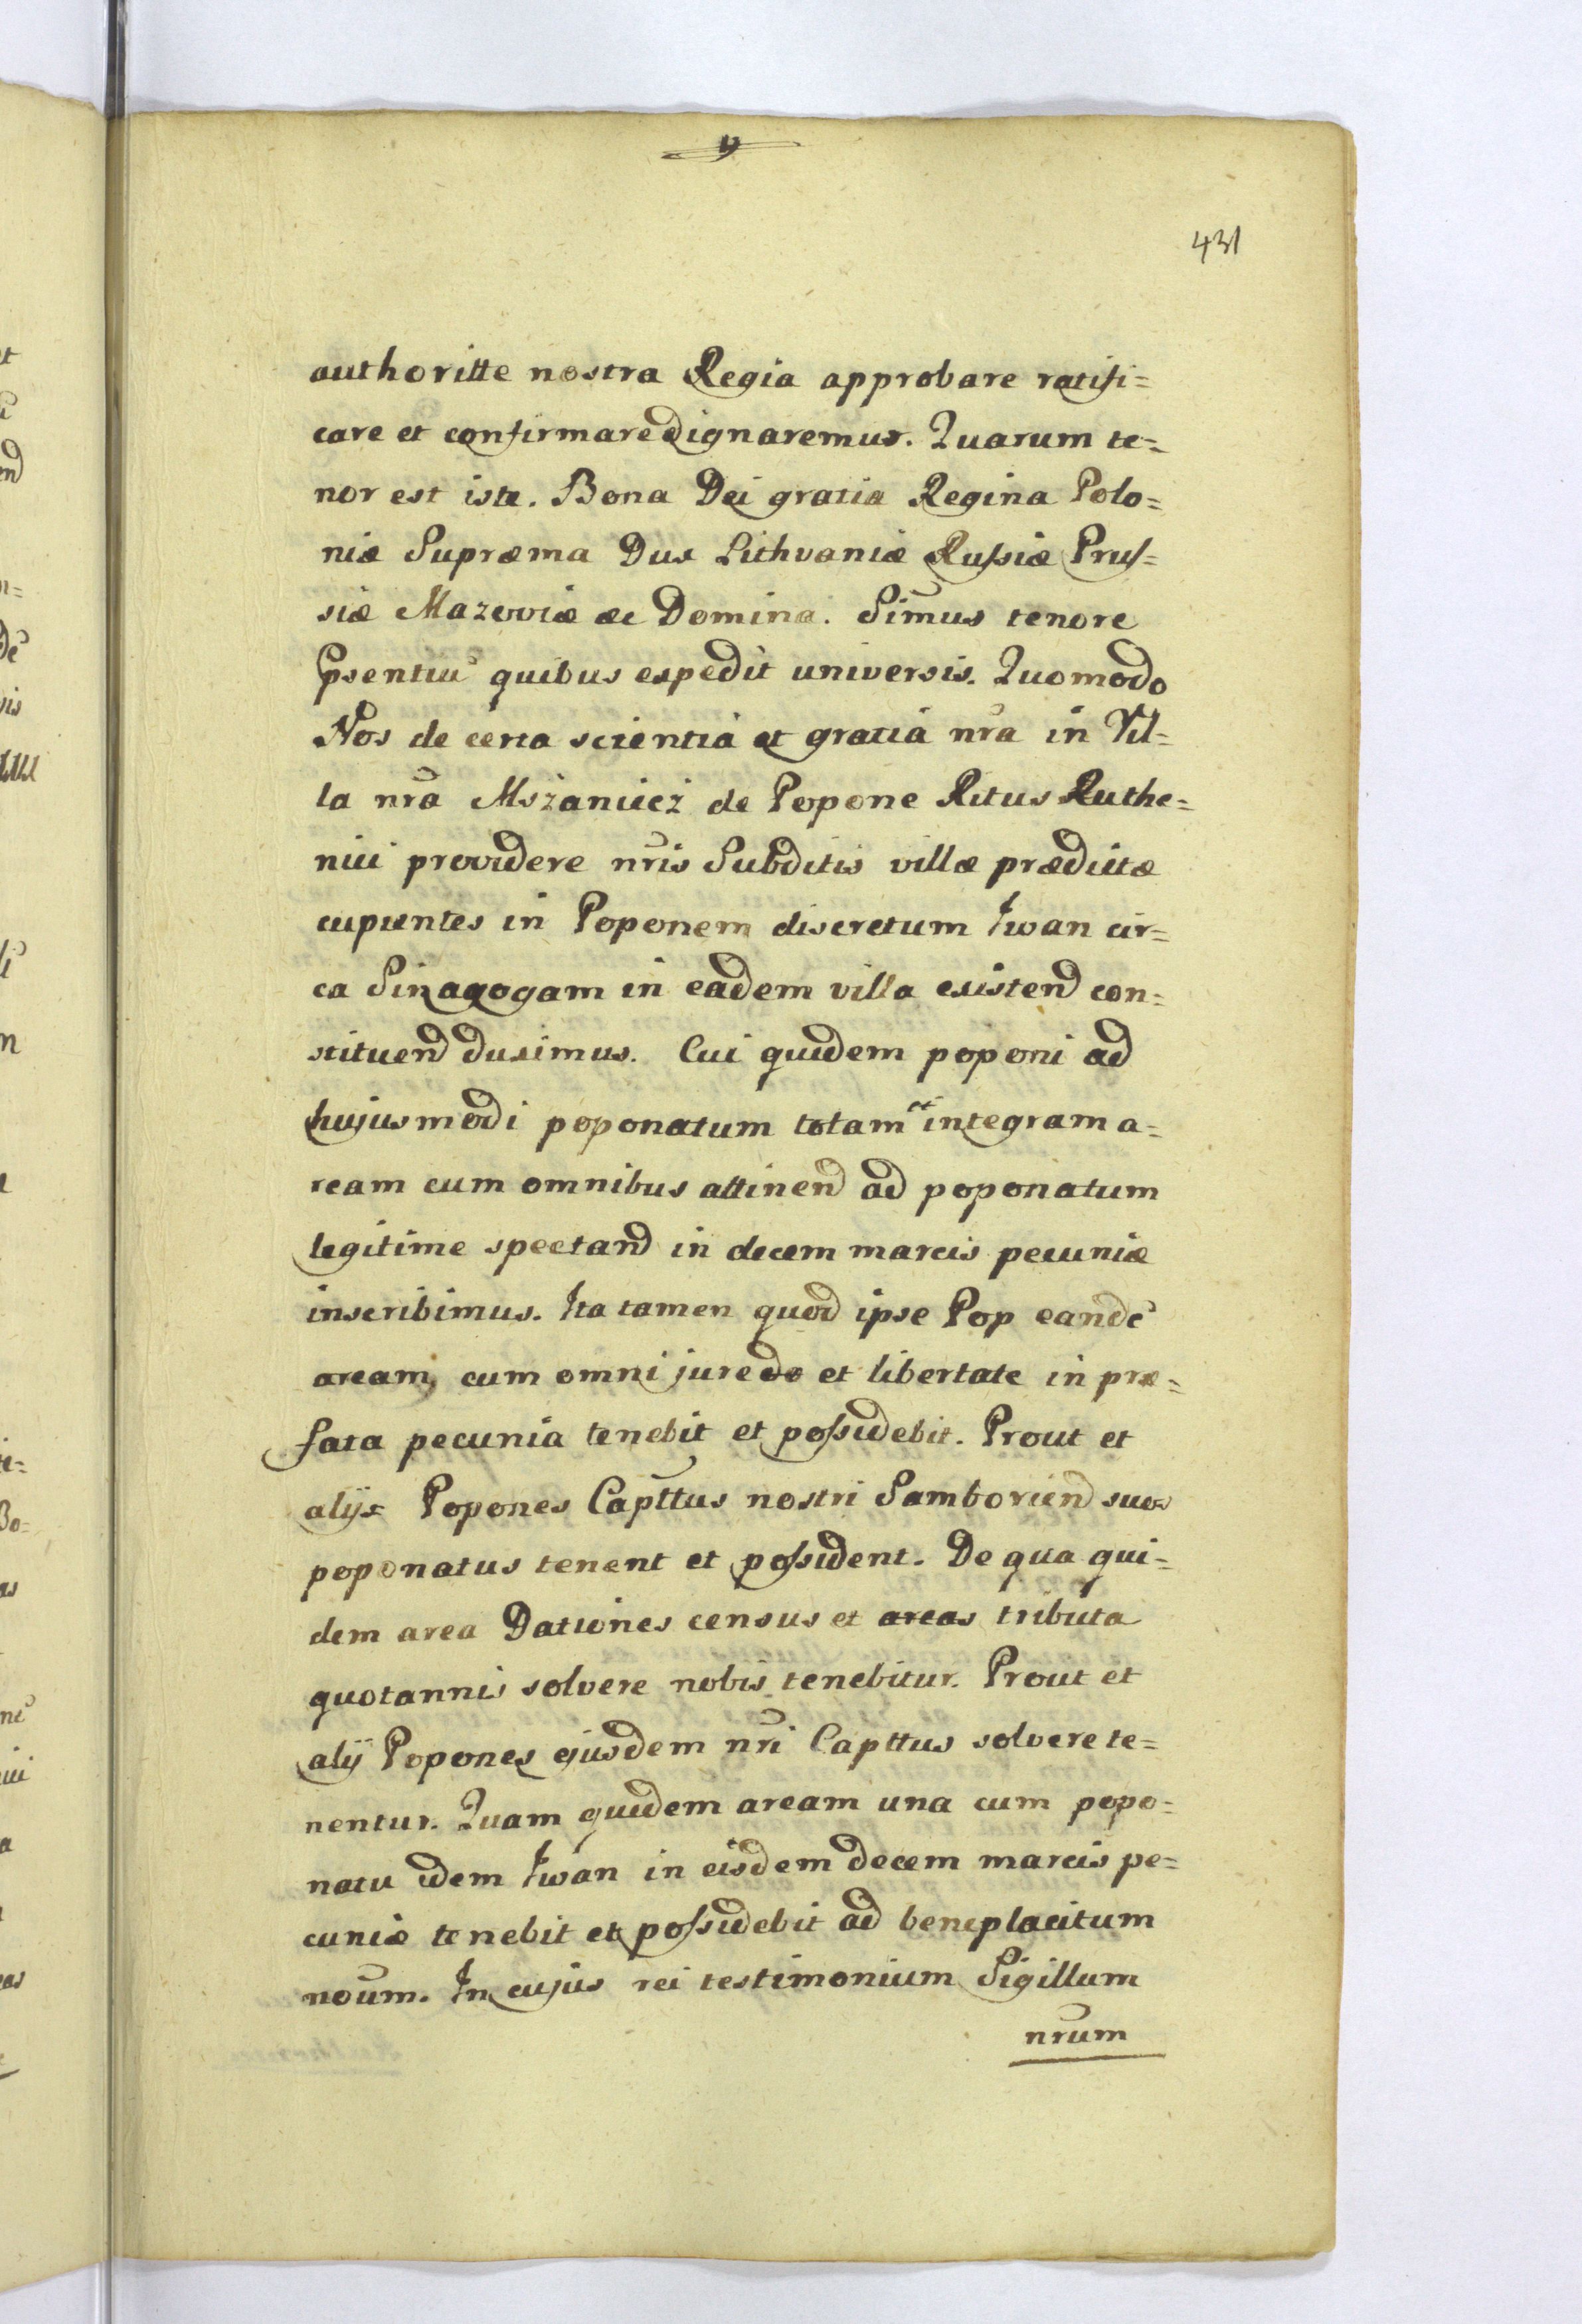 431
authoritte nostra Regia approbare ratifi=
care et confirmare dignaremur. Quarum te=
nor est iste. Bona Dei gratia Regina Polo=
niæ Supræma Dux Lithvaniæ Russiæ Prus=
siæ Mazoviæ æc Domina. Simus tenore
psentiu quibus expedit universis. Quomodo
Nos de certa scientiá et gratiá nra in Vil=
la nra Mszaniiecz de Popone Ritus Ruthe=
nici providere nris Subditis villæ prædictæ
cupientes in Poponem discretum Iwan cir=
ca Sinagogam in eadem villa existend con=
stituend duximus. Cui quidem poponi ad
hujusmodi poponatum totam et integram a=
ream cum omnibus attinend ad poponatum
legitime spectand in decem marcis pecuniæ
inscribimus. Ita tamen quod ipse Pop eandē
aream, cum omni jure do et libertate in præ=
fata pecunia tenebit et possidebit. Prout et
alys Popones Capttus nostri Samboriend suos
poponatus tenent et possident. De qua qui=
dem area Dationes census et areas tributa
quotannis solvere nobis tenebitur. Prout et
alÿ Popones ejusdem nri Capttus solvere te=
nentur. Quam quidem aream una cum popo=
natu idem Iwan in eisdem decem marcis pe=
cuniæ tenebit et possidebit ad beneplacitum
noum. In cujus rei testimonium Sigillum
nrum